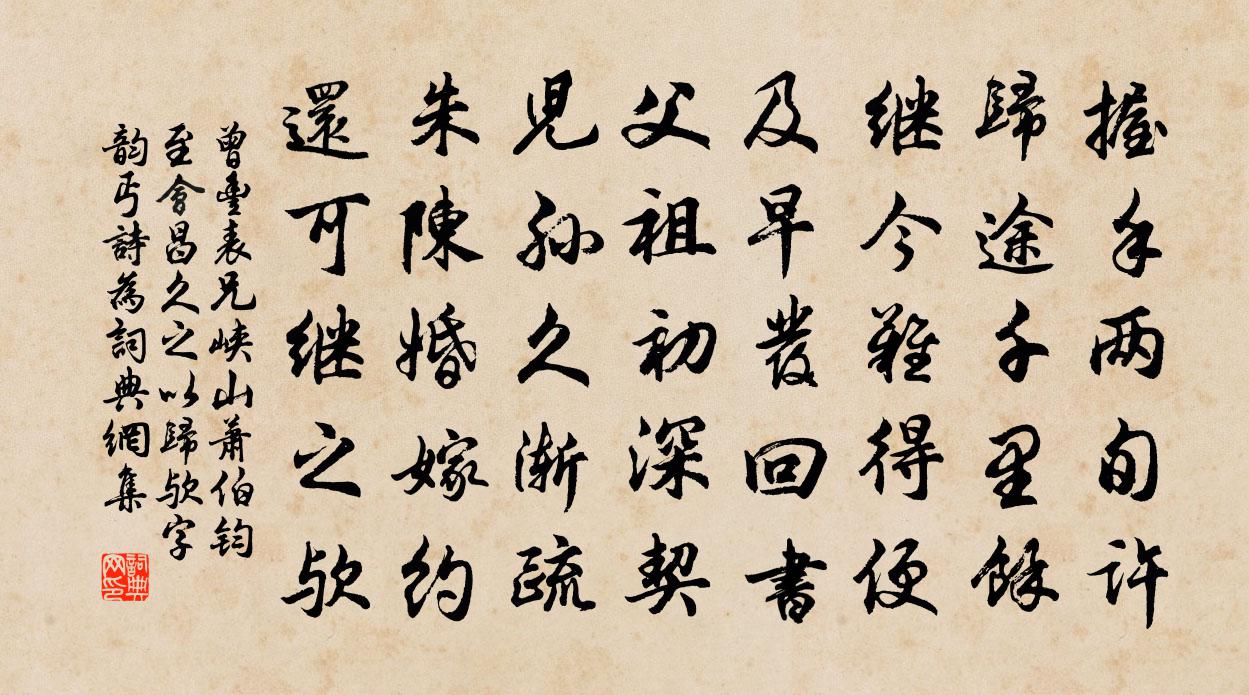 握手两旬许
歸途千里餘
继今難得便
及早發回書
父祖初深契
兒孫久漸疏
朱陳婚嫁約
還可继之欤
曾豊表兄峡山萧伯鈞
至會昌久之以歸欤字
韵丐詩為詞典網集
詞典
网印